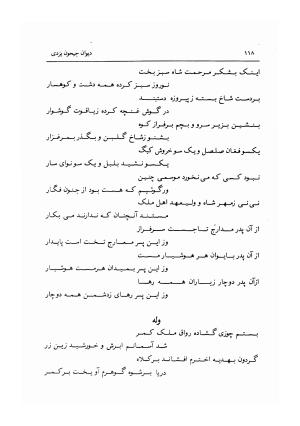 ۱۱۸ دیوان جیحون یزدی
اینک بشکر مرحمت شاه سبز بخت
نوروز سبز کرده همه دشت و کوهسار
بردست شاخ بسته ز پیروزه دستبند
در گوش غنچه کرده ز یاقوت گوشوار
بنشین بزیر سرو و بچم بر فراز کوه
بشنو ز شاخ گلبن و بگذر بمرغزار
یکسو فغان صلصل و یک سو خروش کبک
یکسو نشید بلبل و یک سو نوای سار
نبود کسی که می نخورد موسمی چنین
ور گوئیم که هست بود از جنون فگار
نی نی ز مهر شاه و ولیعهد اهل ملک
مستند آنچنان که ندارند می بکار
از آن پدر مدارج تاجست سرفراز
وز این پسر معارج تخت است پایدار
از آن پدر بایوان هر هوشیار مست
وز این پسر بمیدان هر مست هوشیار
از آن پدر دوچار زیاران همه رها
وز این پسر رهای زدشمن همه دوچار
وله
بستم چوزی گشاده رواق ملک کمر
شد آسمانم ابرش و خورشید زین زر
گردون بهدیه اخترم افشاند بر کلاه
دریا برشوه گوهرم آویخت بر کمر